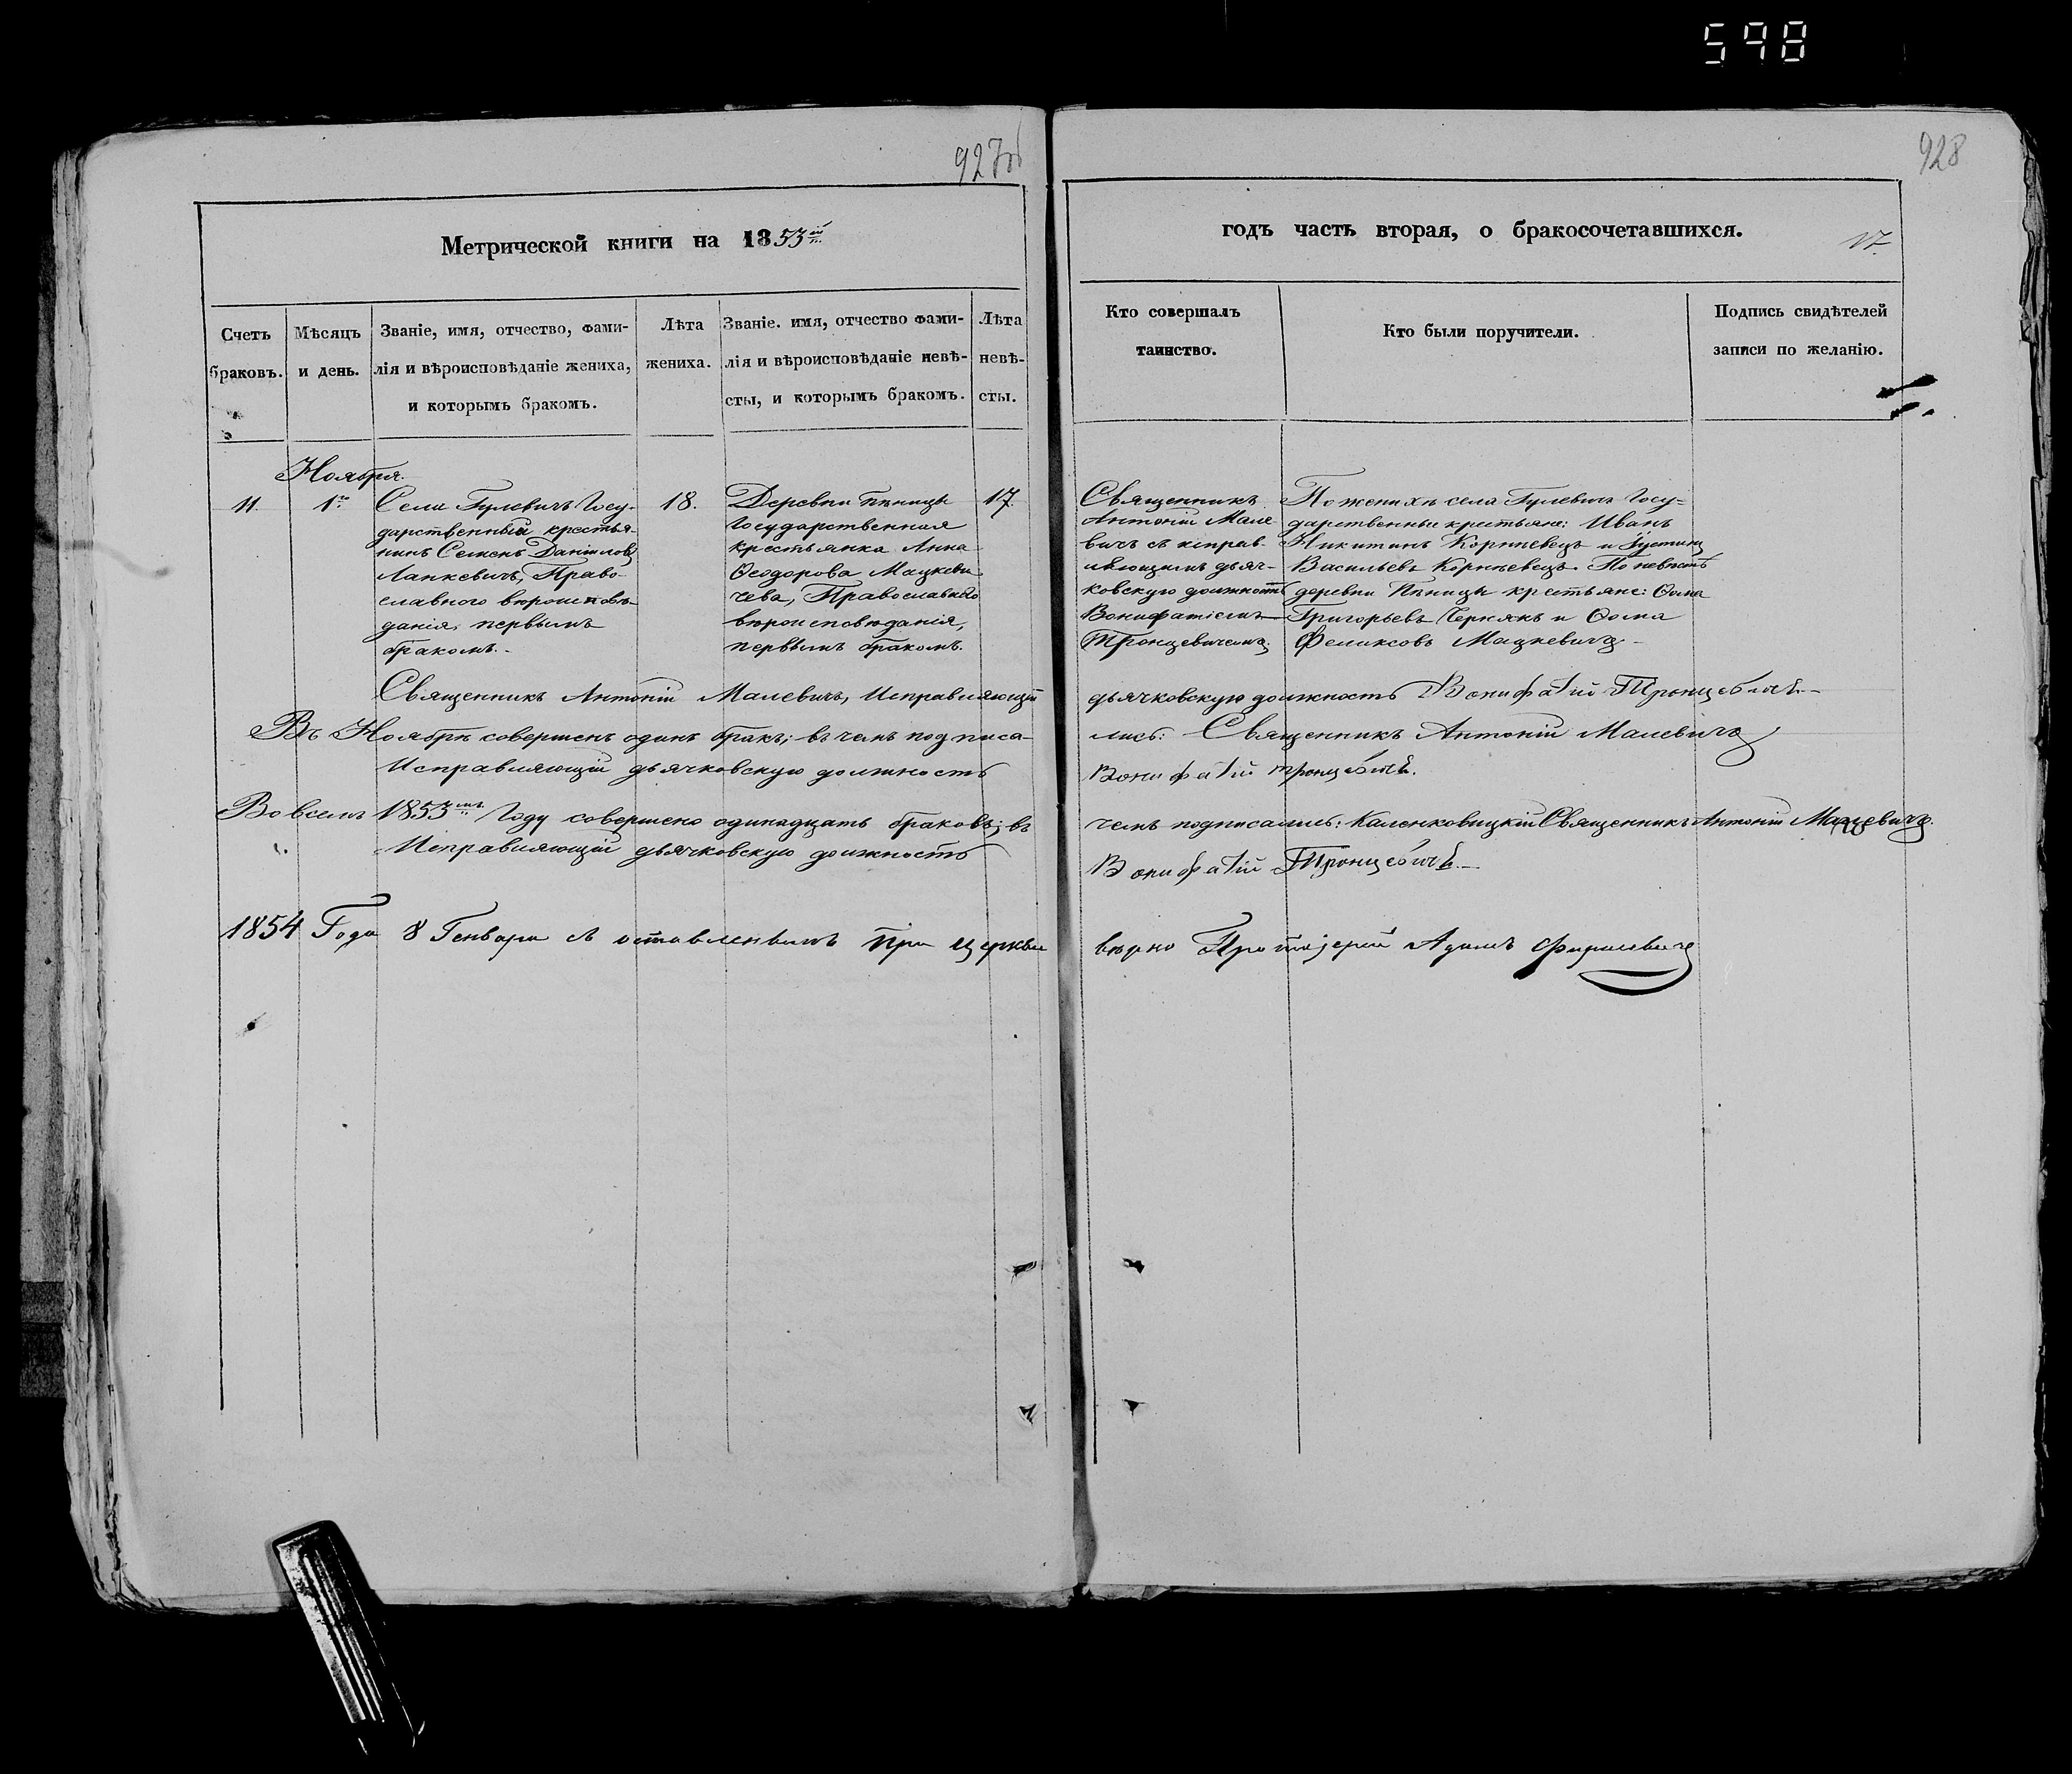 598
927об
928
Метрической книги на 1853ій
годъ часть вторая, о бракосочетавшихся.
17.
Счетъ браковъ.
Мѣсяцъ и день.
Званіе, имя, отчество, фами-
лія и вѣроисповѣданіе жениха,
и которымъ бракомъ.
Лѣта жениха.
Званіе. имя, отчество фами-
лія и вѣроисповѣданіе невѣ-
сты, и которымъ бракомъ.
Лѣта невѣ-
сты.
Кто совершалъ
таинство.
Кто были поручители.
Подпись свидѣтелей
записи по желанію.
Ноября.
11.
1го
Села Гулевичъ Госу-
дарственный крестья-
нинъ Семенъ Даніиловъ
Лапкевичъ, Право-
славного вѣроисповѣ-
данія, первымъ
бракомъ.-
18.
Деревни Пѣницы
Государственная
крестьянка Анна
Ѳеодорова Мацкеви-
чева, Православного
вѣроисповѣданія,
первымъ бракомъ.
17.
Священникъ
Антоній Мале-
вичъ съ исправ-
ляющимъ дьяч-
ковскую должность
Вонифатіемъ
Тронцевичемъ.
По женихѣ села Гулевичъ Госу-
дарственные крестьяне: Иванъ
Никитинъ Корнѣевецъ и Іустинъ
Васильевъ Корнѣевецъ. По невѣстѣ
деревни Пѣницы крестьяне: Ѳома
Григорьевъ Чернякъ и Ѳома
Феликсовъ Мацкевичъ.-
Священникъ Антоній Малевичъ, Исправляющій дьячковскую должность Вонифатій Тронцевичъ.-
Въ Ноябрѣ совершенъ одинъ бракъ; въ чемъ подписа-
лись: Священникъ Антоній Малевичъ
Исправляющій дьячковскую должность Вонифатій Тронцевичъ.
Во всемъ 1853мъ Году совершено одинадцать браковъ; въ чемъ подписались: Каленковицкій Священникъ Антоній Малевичъ.
Исправляющій дьячковскую должность Вонифатій Тронцевичъ.-
1854 Года 8 Генваря съ оставленнымъ при церкви вѣрно Протоіерей Адамъ